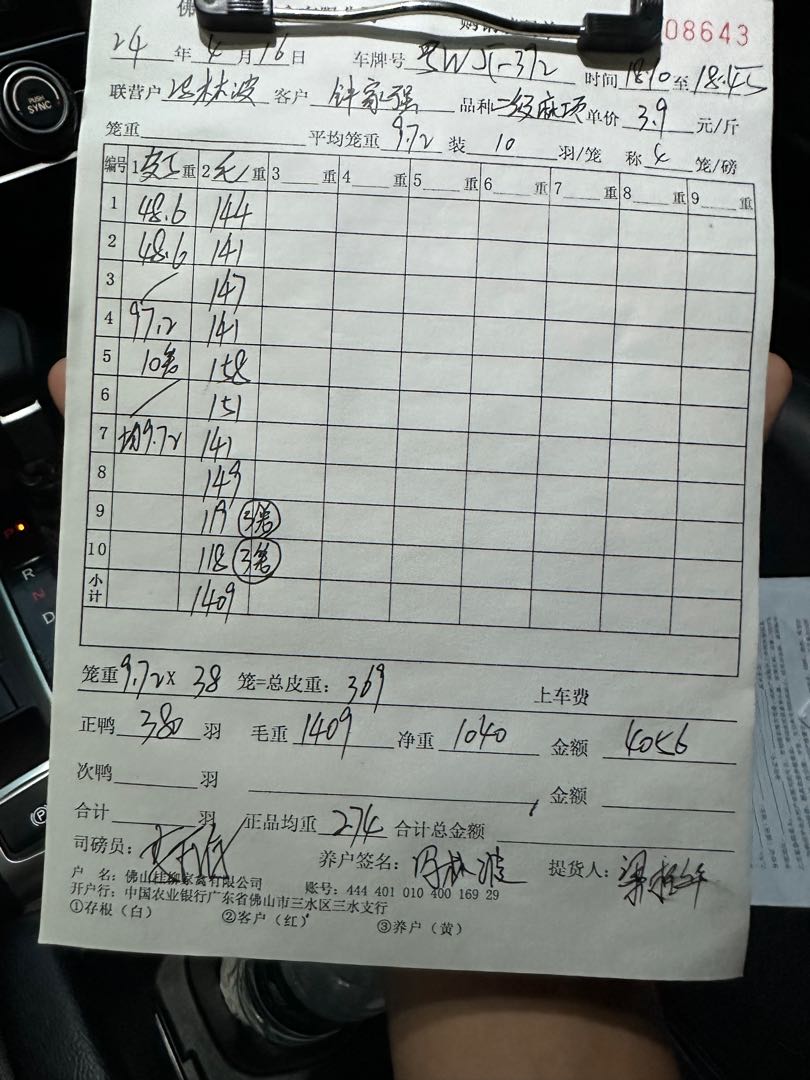 PUSH
SYNC
佛
购销
08643
24年4月16日 车牌号 372 时间18.10至18.45
联营户冯林波 客户 钟家强 品种二级麻项单价3.9元/斤
笼重 平均笼重9.72装10羽/笼 称4笼/磅
编号 1 重 2毛重 3 重 4 重 5 重 6 重 7 重 8 重 9 重
1 48.6 144
2 48.6 141
3 147
4 97.2 141
5 10笼 158
6 151
7 均9.72 141
8 149
9 119 3笼
10 118 3笼
小计 1409
笼重9.72×38笼=总皮重:369 上车费
正鸭380羽 毛重1409净重1040金额4056
次鸭 羽 金额
合计 羽 正品均重2.74合计总金额
司磅员: 养户签名:冯林波 提货人:
户 名:佛山桂柳家禽有限公司 账号:444 401 010 400 169 29
开户行:中国农业银行广东省佛山市三水区三水支行
①存根(白) ②客户(红) ③养户(黄)
P
R
N
D